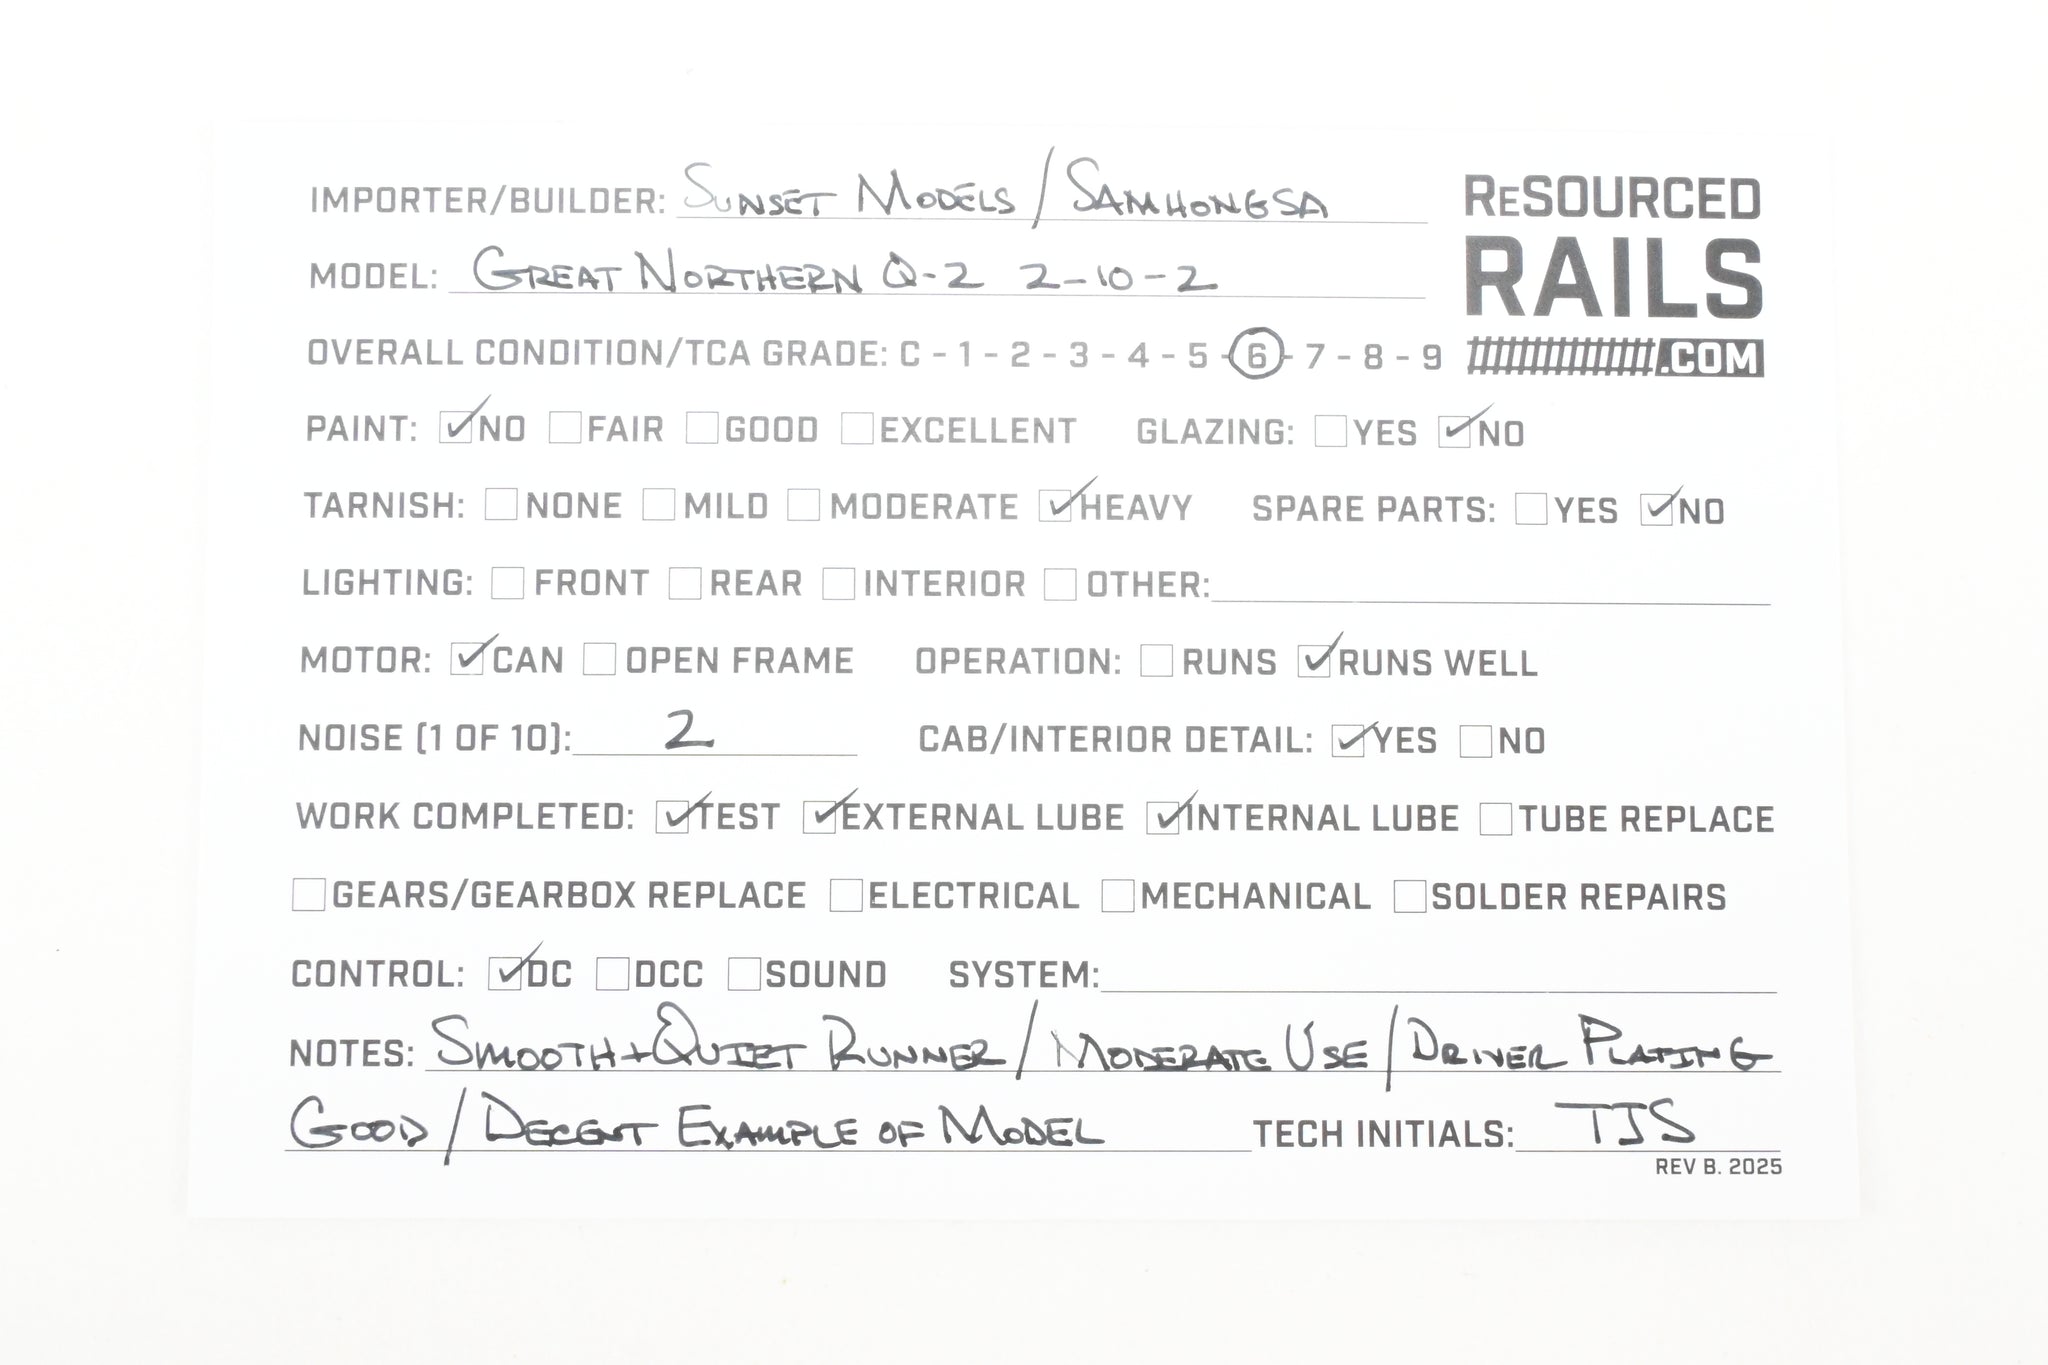 IMPORTER/BUILDER: SUNSET MODELS / SAMHONGSA
RESOURCED
RAILS
.COM
MODEL: GREAT NORTHERN Q-2 2-10-2
OVERALL CONDITION/TCA GRADE: C - 1 - 2 - 3 - 4 - 5 - 6 - 7 - 8 - 9
PAINT: ☑NO ☐FAIR ☐GOOD ☐EXCELLENT GLAZING: ☐YES ☑NO
TARNISH: ☐NONE ☐MILD ☐MODERATE ☑HEAVY SPARE PARTS: ☐YES ☑NO
LIGHTING: ☐FRONT ☐REAR ☐INTERIOR ☐OTHER:
MOTOR: ☑CAN ☐OPEN FRAME OPERATION: ☐RUNS ☑RUNS WELL
NOISE (1 OF 10): 2 CAB/INTERIOR DETAIL: ☑YES ☐NO
WORK COMPLETED: ☑TEST ☑EXTERNAL LUBE ☑INTERNAL LUBE ☐TUBE REPLACE
☐GEARS/GEARBOX REPLACE ☐ELECTRICAL ☐MECHANICAL ☐SOLDER REPAIRS
CONTROL: ☑DC ☐DCC ☐SOUND SYSTEM:
NOTES: SMOOTH+QUIET RUNNER / MODERATE USE / DRIVER PLATING
GOOD / DECENT EXAMPLE OF MODEL TECH INITIALS: TJS
REV B. 2025